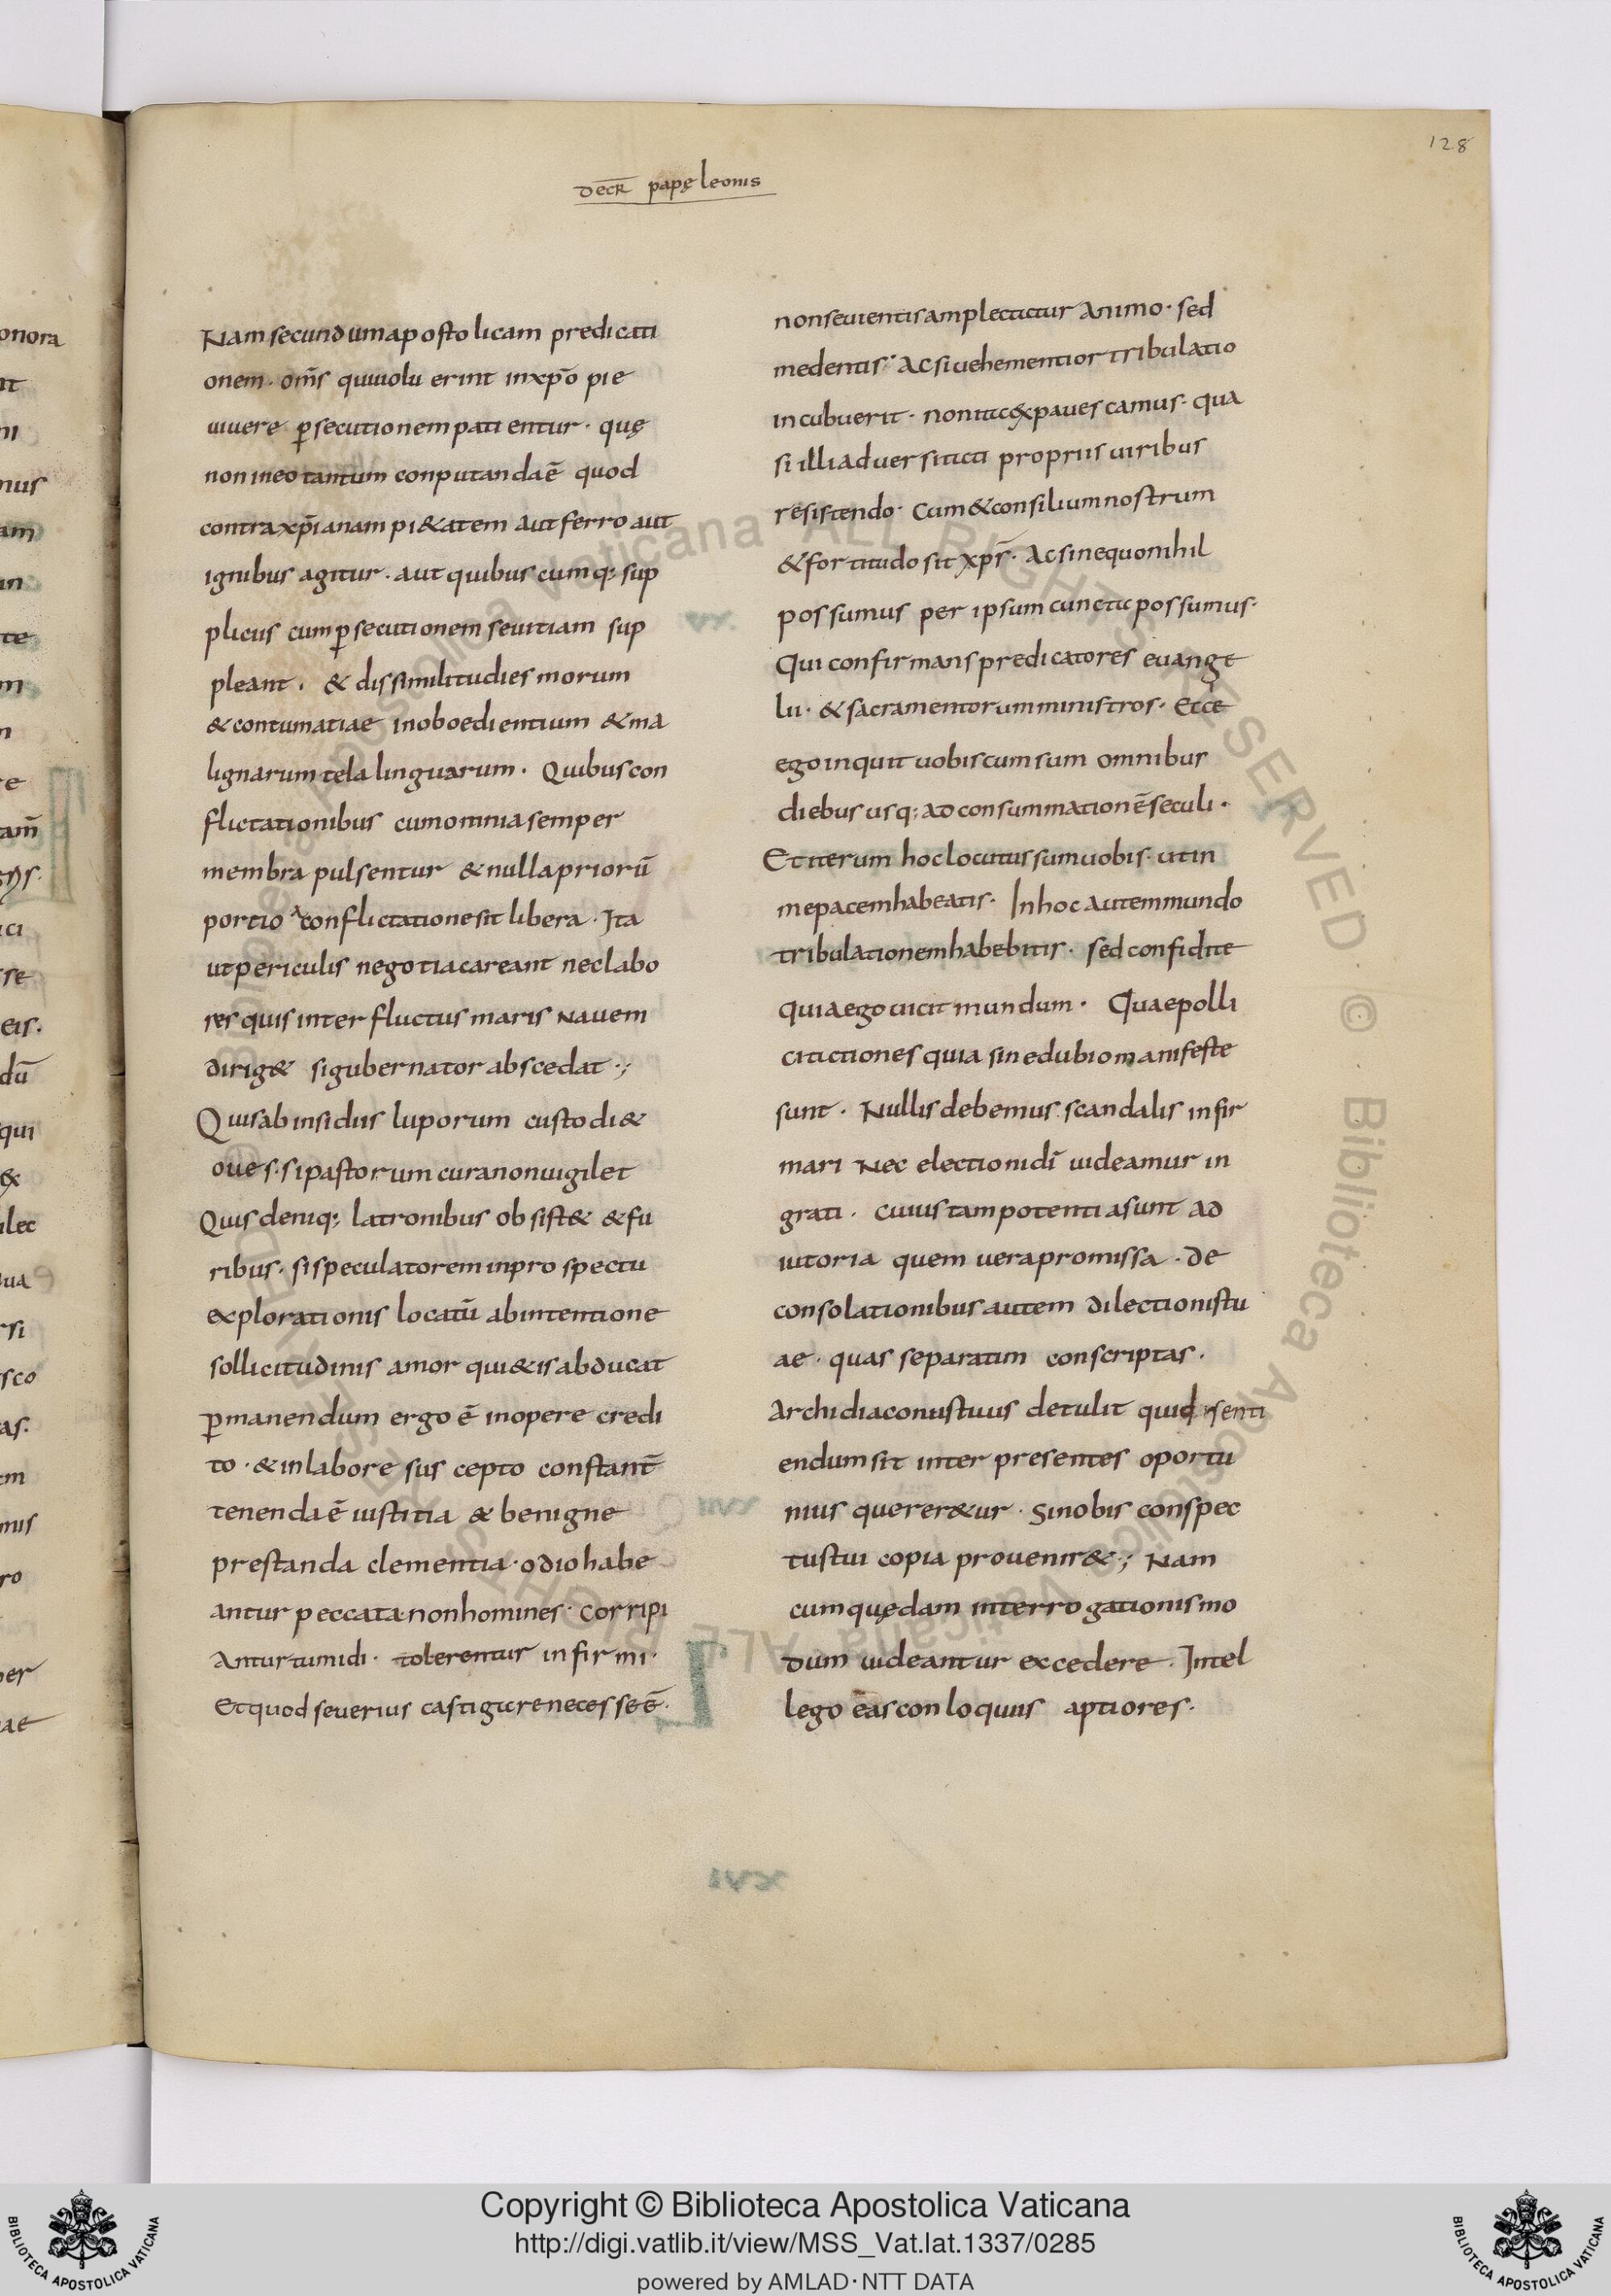 128
decr̄ papę leonis
Nam secundum apostolicam predicati
onem · om̄s qui uoluerint in xp̄o pie
uiuere p̱secutionem patientur · quę
non in eo tantum conputanda ē quod
contra xp̄ianam pi&atem aut ferro aut
ignibus agitur · aut quibuscumq; sup
pliciis cum p̱secutionem seuitiam sup
pleant · & dissimilitudies morum
& contumatiae inoboedientium & ma
lignarum tela linguarum · Quibus con
flictationibus cum omnia semper
membra pulsentur & nulla priorū
portio a conflictatione sit libera · Ita
ut periculis negotia careant nec labo
res quis inter fluctus maris nauem
dirig& si gubernator abscedat ·;
Quis ab insidiis luporum custodi&
oues · si pastorum cura non uigilet
Quis deniq; latronibus obsist& & fu
ribus · si speculatorem in prospectu
explorationis locatū ab intentione
sollicitudinis amor qui&is abducat
p̱manendum ergo ē in opere credi
to · & in labore suscepto constant̄
tenenda ē iustitia & benigne
prestanda clementia · odio habe
antur peccata non homines · corripi
antur tumidi · tolerentur infirmi ·
Et quod seuerius castigare necesse ē ·
non seuientis amplectatur animo · sed
medentis · Ac si uehementior tribulatio
incubuerit · non ita expauescamus · qua
si illi aduersitati propriis uiribus
resistendo · Cum & consilium nostrum
& fortitudo sit xp̄s · Ac sine quo nihil
possumus per ipsum cuncta possumus ·
Qui confirmans predicatores euange
lii · & sacramentorum ministros · Ecce
ego inquit uobiscum sum omnibus
diebus usq; ad consummationē seculi ·
Et iterum hoc locutus sum uobis · ut in
me pacem habeatis · In hoc autem mundo
tribulationem habebitis · sed confidite
quia ego uicit mundum · Quae polli
citationes quia sine dubio manifeste
sunt · Nullis debemus scandalis infir
mari nec electioni dī uideamur in
grati · cuius tam potentia sunt ad
iutoria quem uera promissa · de
consolationibus autem dilectionis tu
ae · quas separatim conscriptas ·
archidiaconus tuus detulit quid senti
endum sit inter presentes oportu
nius querer&ur · Si nobis conspec
tus tui copia prouenir& ·; Nam
cum quędam interrogationis mo
dum uideantur excedere · Intel
lego eas conloquiis aptiores ·
Copyright © Biblioteca Apostolica Vaticana
http://digi.vatlib.it/view/MSS_Vat.lat.1337/0285
powered by AMLAD·NTT DATA